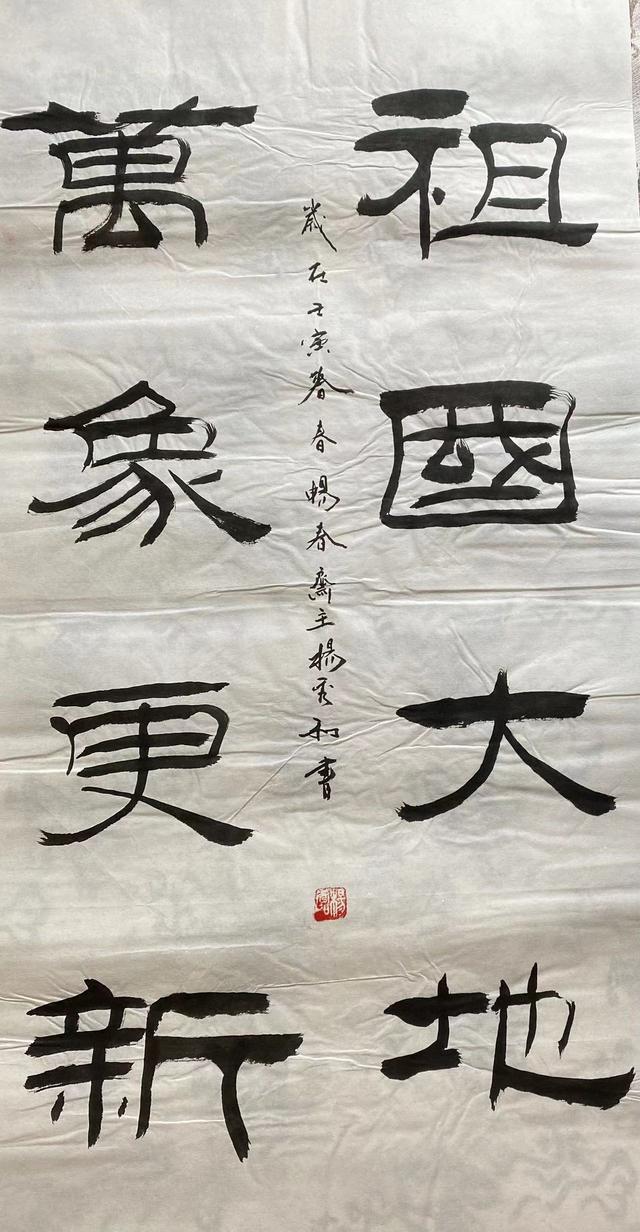 祖國大地
萬象更新
歲在壬寅暮春暢春齋主楊和書